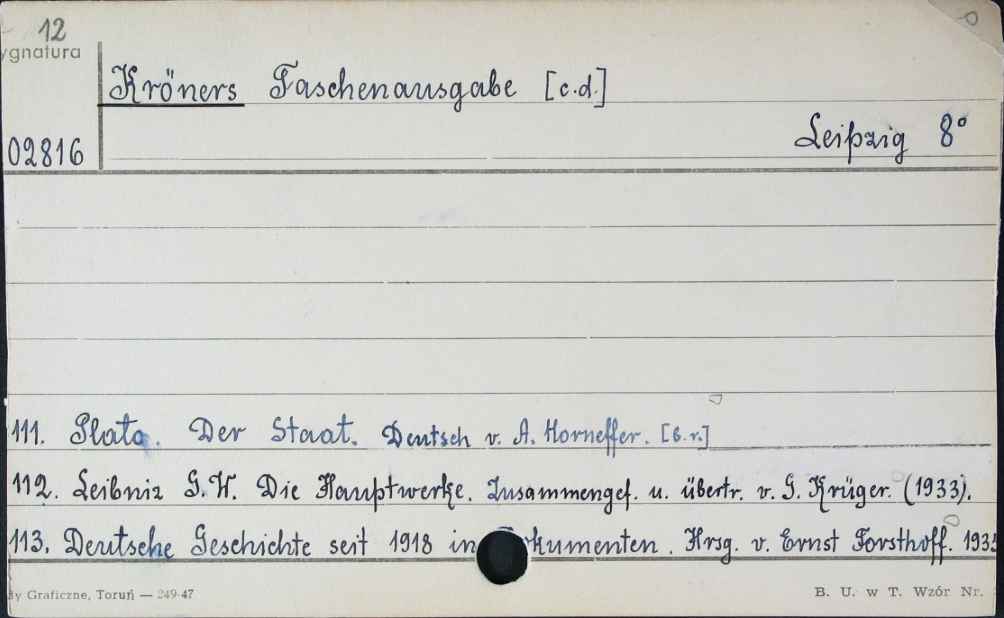 12
ygnatura
Kröners Taschenausgabe [c.d.]
Leipzig 8°
02816
111. Plato. Der Staat. Deutsch v. A. Horneffer. [b.r.]
112. Leibniz G.W. Die Hauptwerke. Zusammengef. u. übertr. v. G. Krüger. (1933).
113. Deutsche Geschichte seit 1918 in kumenten. Hrsg. v. Ernst Forsthoff. 193
y Graficzne, Toruń — 249-47
B. U. w T. Wzór Nr.